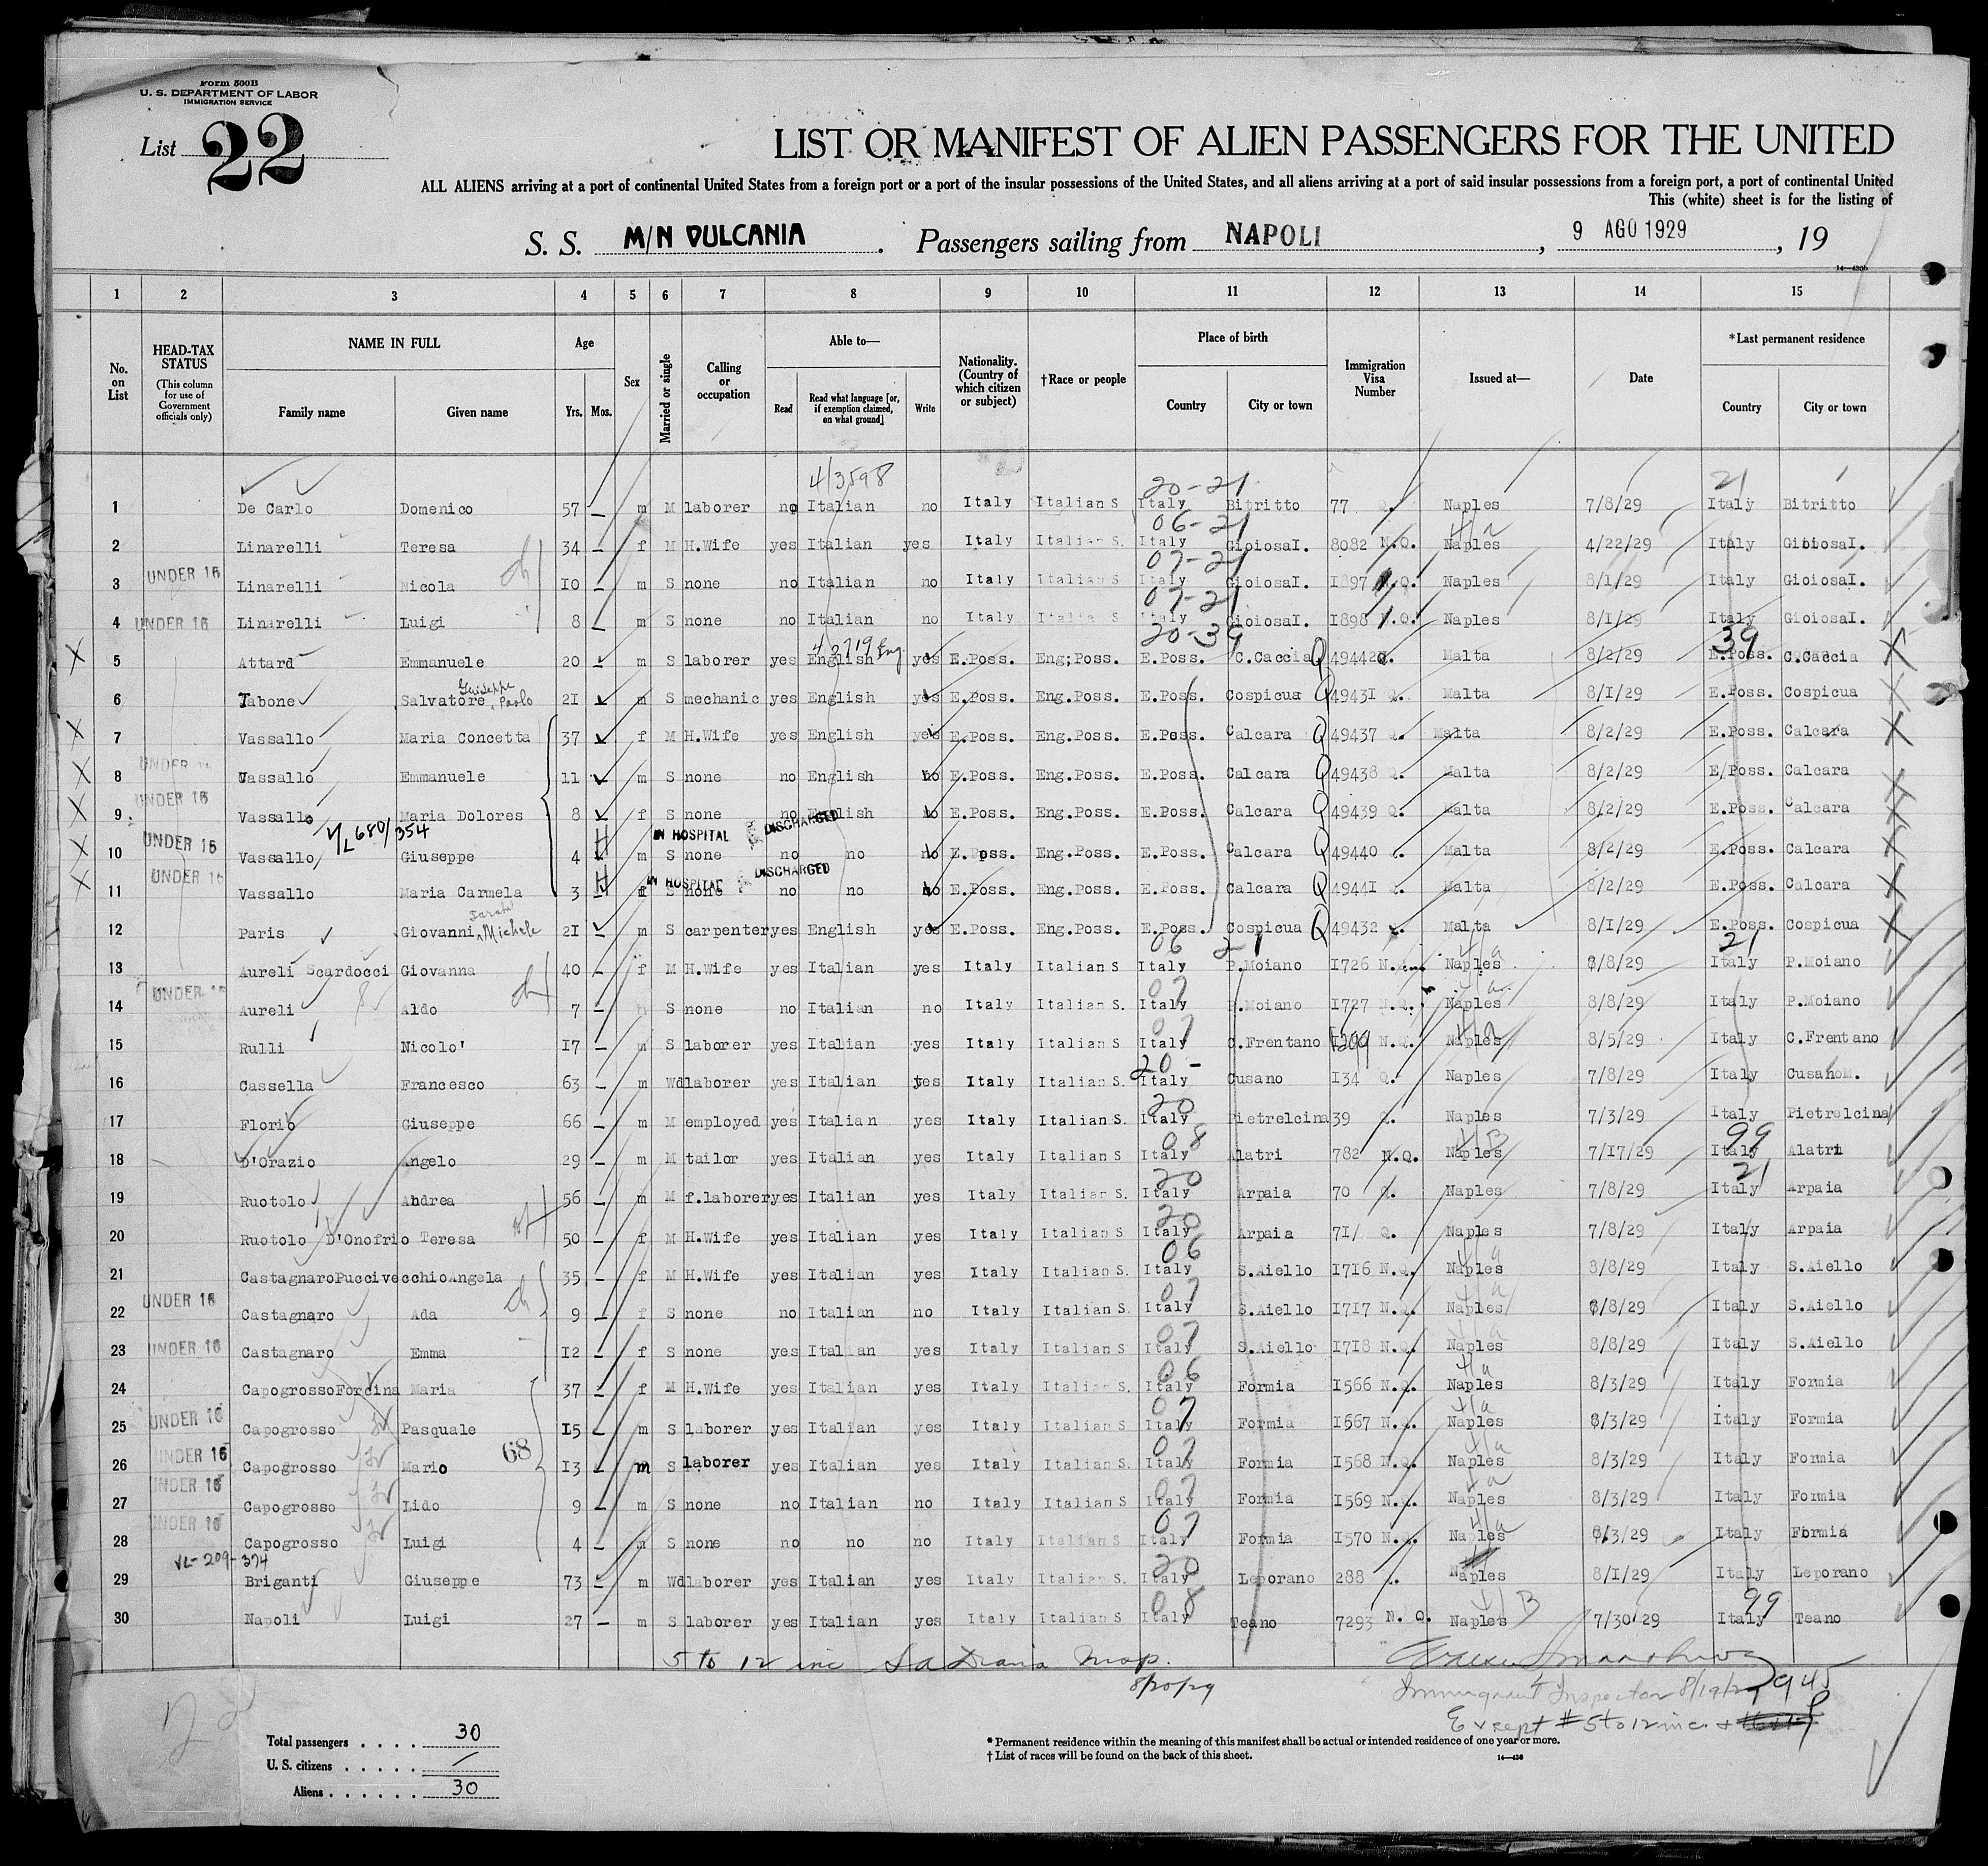 Form 500B
U. S. DEPARTMENT OF LABOR
IMMIGRATION SERVICE
List 22
LIST OR MANIFEST OF ALIEN PASSENGERS FOR THE UNITED
ALL ALIENS arriving at a port of continental United States from a foreign port or a port of the insular possessions of the United States, and all aliens arriving at a port of said insular possessions from a foreign port, a port of continental United
This (white) sheet is for the listing of
S. S. M/N VULCANIA. Passengers sailing from NAPOLI, 9 AGO 1929, 19
14—430b
1 2 3 4 5 6 7 8 9 10 11 12 13 14 15
No. on List
HEAD-TAX STATUS (This column for use of Government officials only)
NAME IN FULL
Family name Given name
Age
Yrs. Mos.
Sex
Married or single
Calling or occupation
Able to—
Read Read what language [or, if exemption claimed, on what ground] Write
Nationality. (Country of which citizen or subject)
†Race or people
Place of birth
Country City or town
Immigration Visa Number
Issued at—
Date
*Last permanent residence
Country City or town
4/3598 20-21 21
1 De Carlo Domenico 57 — m M laborer no Italian no Italy Italian S Italy Bitritto 77 Q. Naples 7/8/29 Italy Bitritto
06-21 4/a
2 Linarelli Teresa 34 — f M H.Wife yes Italian yes Italy Italian S. Italy GioiosaI. 8082 N.Q. Naples 4/22/29 Italy GioiosaI.
07-21
3 UNDER 16 Linarelli Nicola 10 — m S none no Italian no Italy Italian S Italy GioiosaI. 1897 N.Q. Naples 8/1/29 Italy GioiosaI.
07-21
4 UNDER 16 Linarelli Luigi 8 — m S none no Italian no Italy Italian S Italy GioiosaI. 1898 N.Q. Naples 8/1/29 Italy GioiosaI.
4 3719 Eng. 20-39 39
X 5 Attard Emmanuele 20 — m S laborer yes English yes E.Poss. Eng;Poss. E.Poss. C.Caccia Q 49442 Q. Malta 8/2/29 E.Poss. C.Caccia X
Guiseppe
6 Tabone Salvatore, Paolo 21 m S mechanic yes English yes E.Poss. Eng.Poss. E.Poss. Cospicua Q 49431 Q. Malta 8/1/29 E.Poss. Cospicua X
X 7 Vassallo Maria Concetta 37 f M H.Wife yes English yes E.Poss. Eng.Poss. E.Poss. Calcara Q 49437 Q. Malta 8/2/29 E.Poss. Calcara X
X 8 UNDER 16 Vassallo Emmanuele 11 m S none no English no E.Poss. Eng.Poss. E.Poss. Calcara Q 49438 Q. Malta 8/2/29 E.Poss. Calcara X
X 9 UNDER 16 Vassallo Maria Dolores 8 f S none no English no E.Poss. Eng.Poss. E.Poss. Calcara Q 49439 Q. Malta 8/2/29 E.Poss. Calcara X
V/L 680/354 H IN HOSPITAL DISCHARGED
X 10 UNDER 16 Vassallo Giuseppe 4 m S none no no no E.Poss. Eng.Poss. E.Poss. Calcara Q 49440 Malta 8/2/29 E.Poss. Calcara X
H IN HOSPITAL DISCHARGED
X 11 UNDER 16 Vassallo Maria Carmela 3 f S none no no no E.Poss. Eng.Poss. E.Poss. Calcara Q 49441 Q. Malta 8/2/29 E.Poss. Calcara X
12 Paris Giovanni Michele 21 m S carpenter yes English yes E.Poss. Eng.Poss. E.Poss. Cospicua Q 49432 Malta 8/1/29 E.Poss. Cospicua X
06 21 4/a 21
13 Aureli Scardocci Giovanna 40 — f M H.Wife yes Italian yes Italy Italian S Italy P.Moiano 1726 N.Q. Naples 8/8/29 Italy P.Moiano
07 4/a
14 UNDER 16 Aureli Aldo 7 — m S none no Italian no Italy Italian S. Italy P.Moiano 1727 N.Q. Naples 8/8/29 Italy P.Moiano
07 4/a
15 Rulli Nicolo' 17 — m S laborer yes Italian yes Italy Italian S Italy C.Frentano 1209 N.Q. Naples 8/5/29 Italy C.Frentano
20 -
16 Cassella Francesco 63 — m Wd laborer yes Italian yes Italy Italian S. Italy Cusano 134 Q. Naples 7/8/29 Italy CusanoM.
20
17 Florio Giuseppe 66 — m M employed yes Italian yes Italy Italian S. Italy Pietrelcina 39 Q. Naples 7/3/29 Italy Pietrelcina
08 4/B 99
18 D'Orazio Angelo 29 — m M tailor yes Italian yes Italy Italian S Italy Alatri 782 N.Q. Naples 7/17/29 Italy Alatri
20 21
19 Ruotolo Andrea 56 — m M f.laborer yes Italian yes Italy Italian S. Italy Arpaia 70 Q. Naples 7/8/29 Italy Arpaia
20
20 Ruotolo D'Onofrio Teresa 50 — f M H.Wife yes Italian yes Italy Italian S Italy Arpaia 71 Q. Naples 7/8/29 Italy Arpaia
06 4/a
21 CastagnaroPuccivecchioAngela 35 — f M H.Wife yes Italian yes Italy Italian S. Italy S.Aiello 1716 N.Q. Naples 8/8/29 Italy S.Aiello
07 4/a
22 UNDER 16 Castagnaro Ada 9 — f S none no Italian no Italy Italian S. Italy S.Aiello 1717 N.Q. Naples 8/8/29 Italy S.Aiello
07 4/a
23 UNDER 16 Castagnaro Emma 12 — f S none yes Italian yes Italy Italian S Italy S.Aiello 1718 N.Q. Naples 8/8/29 Italy S.Aiello
06 4/a
24 CapogrossoForcina Maria 37 — f M H.Wife yes Italian yes Italy Italian S. Italy Formia 1566 N.Q. Naples 8/3/29 Italy Formia
07 4/a
25 UNDER 16 Capogrosso Pasquale 15 — m S laborer yes Italian yes Italy Italian S Italy Formia 1567 N.Q. Naples 8/3/29 Italy Formia
68 07 4/a
26 UNDER 16 Capogrosso Mario 13 — m S laborer yes Italian yes Italy Italian S. Italy Formia 1568 N.Q. Naples 8/3/29 Italy Formia
07 4/a
27 UNDER 16 Capogrosso Lido 9 — m S none no Italian no Italy Italian S Italy Formia 1569 N.Q. Naples 8/3/29 Italy Formia
07 4/a
28 UNDER 16 Capogrosso Luigi 4 — m S none no no no Italy Italian S Italy Formia 1570 N.Q. Naples 8/3/29 Italy Formia
VL-209-374 20
29 Briganti Giuseppe 73 — m Wd laborer yes Italian yes Italy Italian S. Italy Leporano 288 Naples 8/1/29 Italy Leporano
08 4/B 99
30 Napoli Luigi 27 — m S laborer yes Italian yes Italy Italian S Italy Teano 7293 N.Q. Naples 7/30/29 Italy Teano
5 to 12 inc Insp.
8/20/29
Immigrant Inspector 8/19/29 945
Except # 5 to 12 inc. +
Total passengers . . . . 30
U. S. citizens . . . . . /
Aliens . . . . . . 30
* Permanent residence within the meaning of this manifest shall be actual or intended residence of one year or more.
† List of races will be found on the back of this sheet.
14—430